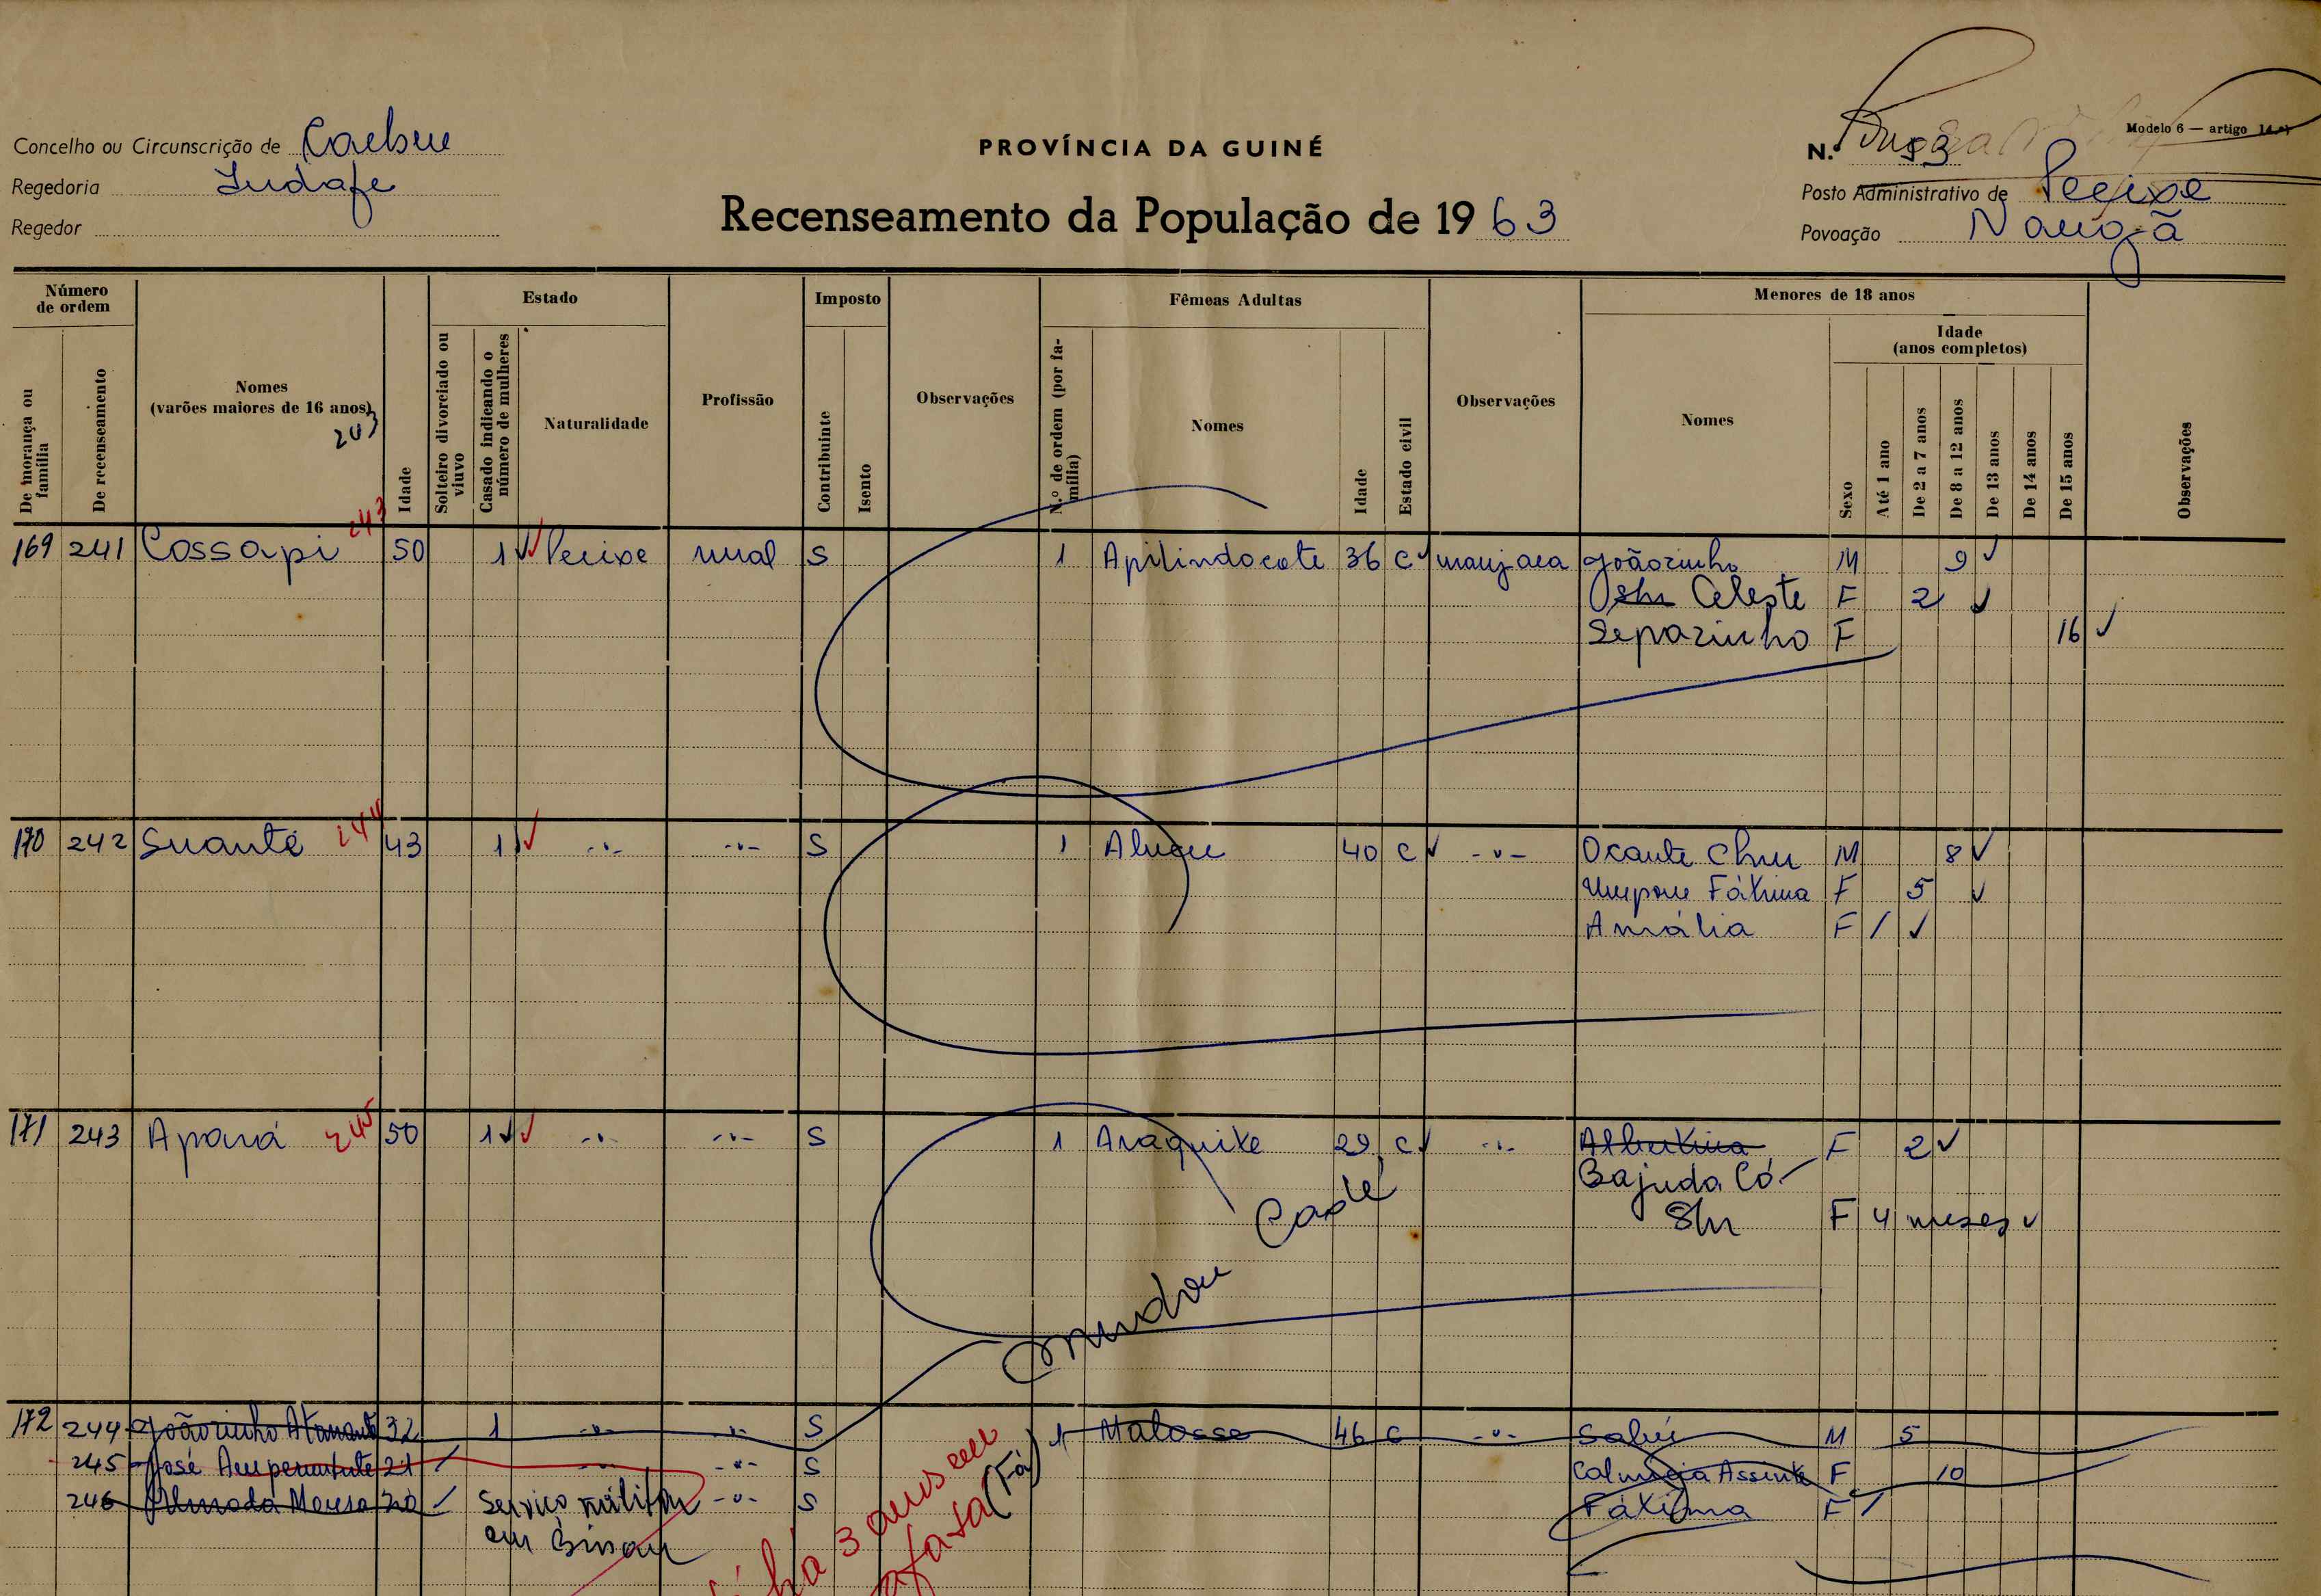 Modelo 6 — artigo 14.º)
Concelho ou Circunscrição de Caebue
PROVÍNCIA DA GUINÉ
N.º 53
Regedoria Indafe
Posto Administrativo de Pecixe
Regedor
Recenseamento da População de 1963
Povoação Nangã
Número de ordem
Estado
Imposto
Fêmeas Adultas
Menores de 18 anos
Idade (anos completos)
De morança ou família
De recenseamento
Nomes (varões maiores de 16 anos)
203
Idade
Solteiro divorciado ou viuvo
Casado indicando o número de mulheres
Naturalidade
Profissão
Contribuinte
Isento
Observações
N.º de ordem (por família)
Nomes
Idade
Estado civil
Observações
Nomes
Sexo
Até 1 ano
De 2 a 7 anos
De 8 a 12 anos
De 13 anos
De 14 anos
De 15 anos
Observações
243
169 241 Cossapi 50 1 Pecixe rural S 1 Apilindocote 36 C manjaca Joãozinho M 9
Celeste F 2
Separinho F 16
170 242 Suante 244 43 1 -"- -"- S 1 40 C -"- Ocante M 8
Fátima F 5
Amália F /
171 243 Apaná 245 50 1 -"- -"- S 1 Araquite 29 C -"- Albertina F 2
Bajuda Có
F 4 meses
mudou Caolé
172 244 Joãozinho 32 1 -"- -"- S 1 Malosse 46 C -"- Salú M 5
245 José 21 -"- -"- S Assinte F 10
246 Almada 20 Serviço militar -"- S Fátima F /
em Bissau
há 3 anos em
(Fá)